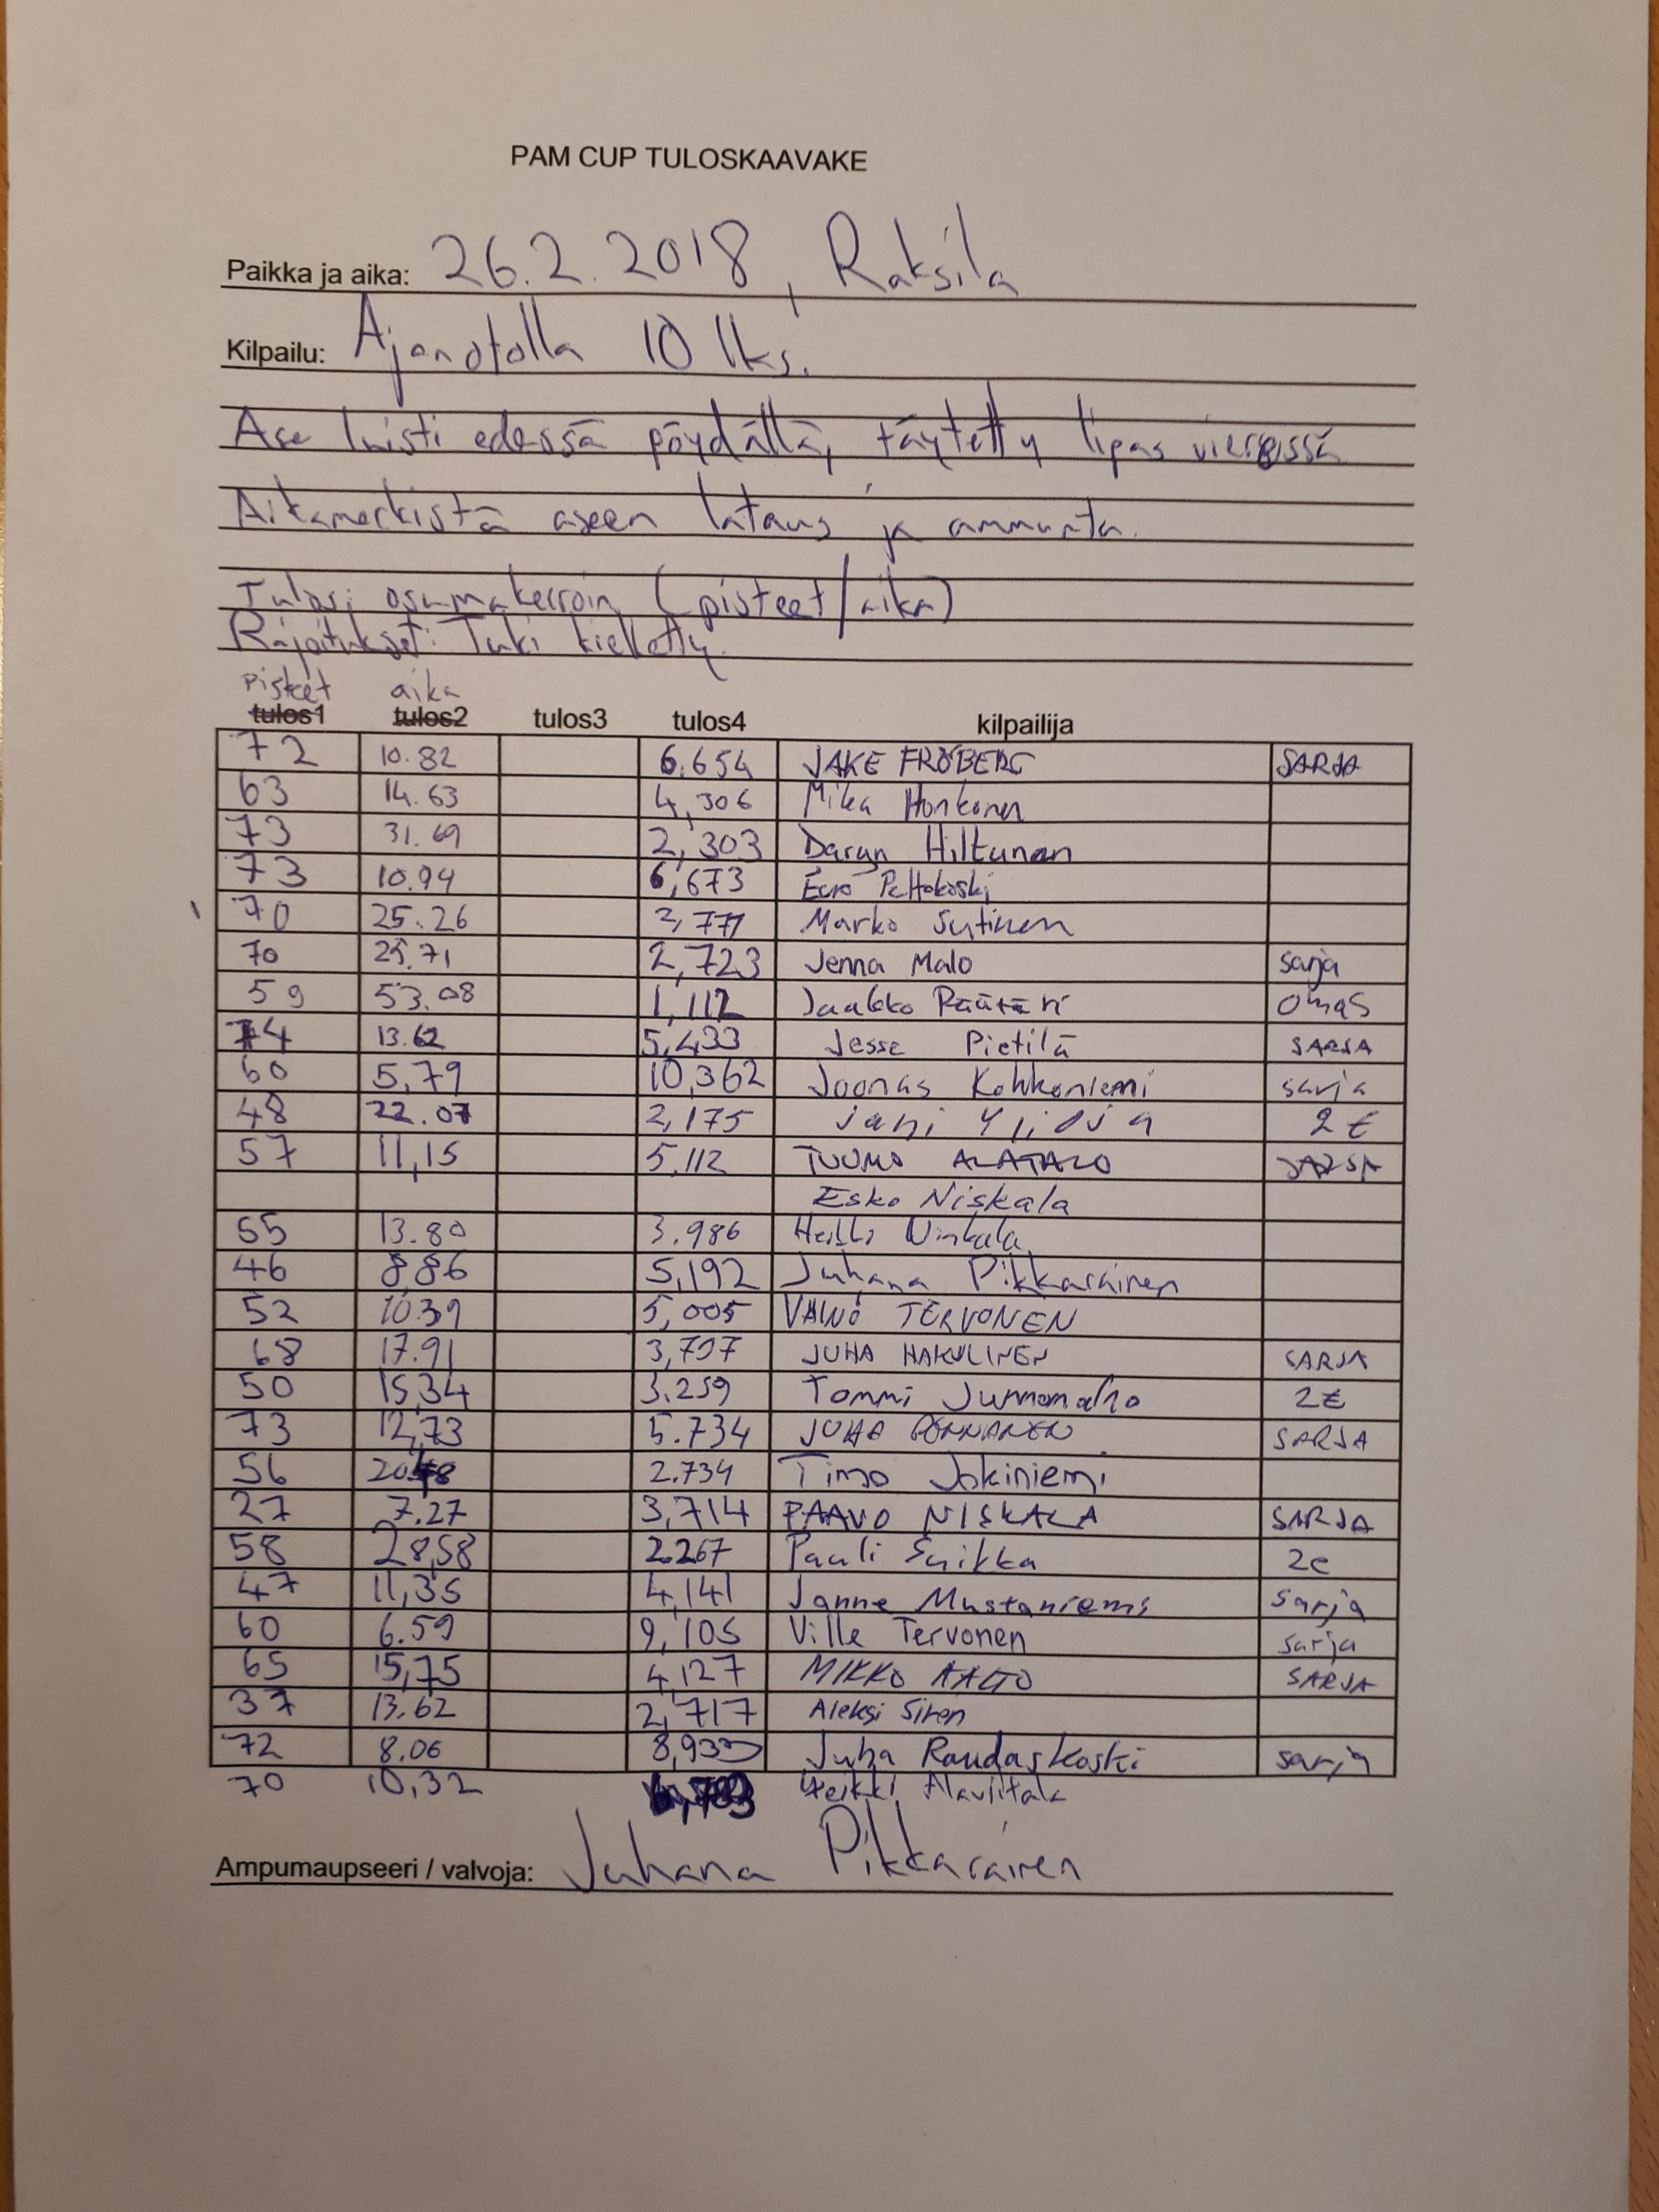 PAM CUP TULOSKAAVAKE
Paikka ja aika: 26.2.2018, Raksila
Kilpailu: Ajanotolla 10 lks.
Ase luisti edessä pöydällä, täytetty lipas vieressä
Aikamerkistä aseen lataus ja ammunta.
Tulos: osumakerroin (pisteet/aika)
Rajoitukset: Tuki kielletty.
pisteet aika
tulos1 tulos2 tulos3 tulos4 kilpailija
72 10.82 6.654 JAKE FRÖBERG SARJA
63 14.63 4,306 Mika Honkanen
73 31.69 2,303 Daryn Hiltunen
73 10.94 6,673 Eero Peltokoski
70 25.26 2,771 Marko Sutinen
70 25.71 2,723 Jenna Malo sarja
59 53.08 1,112 Jaakko Määttä omas
74 13.62 5,433 Jesse Pietilä SARJA
60 5,79 10,362 Joonas Kohkoniemi sarja
48 22.07 2,175 jani Ylioja 2 €
57 11,15 5.112 TUOMO ALATALO SARJA
Esko Niskala
55 13.80 3.986 Heikki Niskala
46 8,86 5,192 Juhana Pikkarainen
52 10.39 5,005 VÄINÖ TERVONEN
68 17.91 3,797 JUHA HAKULINEN SARJA
50 15,34 3.259 Tommi 2€
73 12,73 5.734 JUHA PENNANEN SARJA
56 20.48 2.734 Timo Jokiniemi
27 7.27 3,714 PAAVO NISKALA SARJA
58 28,58 2.267 Pauli Suikka 2e
47 11,35 4,141 Janne Mustaniemi sarja
60 6.59 9,105 Ville Tervonen sarja
65 15,75 4,127 MIKKO AALTO SARJA
37 13.62 2,717 Aleksi Siren
72 8.06 8,933 Juha Raudaskoski sarja
70 10,32 6,783 Heikki Alaviitala
Ampumaupseeri / valvoja: Juhana Pikkarainen